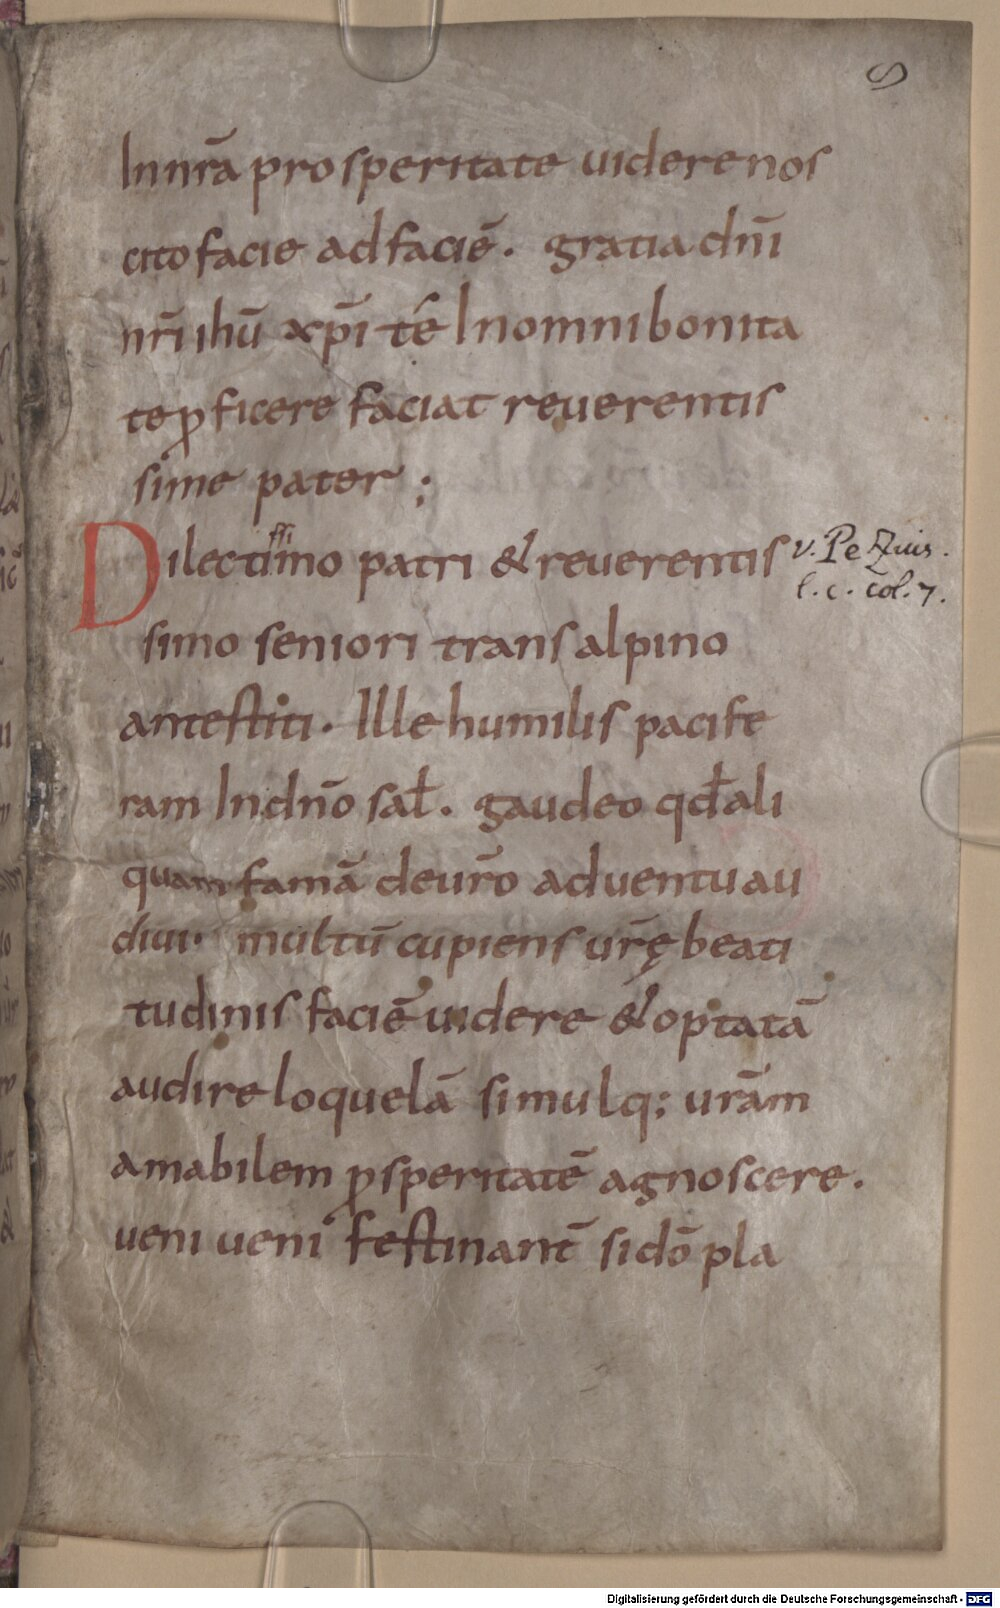 In nr̄a prosperitate uidere nos
cito facie ad faciē. gratia dn̄i
nr̄i ihū xp̄i tē In omni bonita
te ꝓficere faciat reuerentis
sime pater ;
Dilectissimo patri & reuerentis
v. Pez
l. c. col. 7.
simo seniori transalpino
antestiti. Ille humilis pacife
ram In dn̄o sał. gaudeo qd̄ ali
quam famā de ur̄o aduentu au
diui. multū cupiens ur̄ę beati
tudinis faciē uidere & optatā
audire loquelā simulq; ur̄am
amabilem ꝓsperitatē agnoscere.
ueni ueni festinant̄ si dō pla
Digitalisierung gefördert durch die Deutsche Forschungsgemeinschaft - DFG